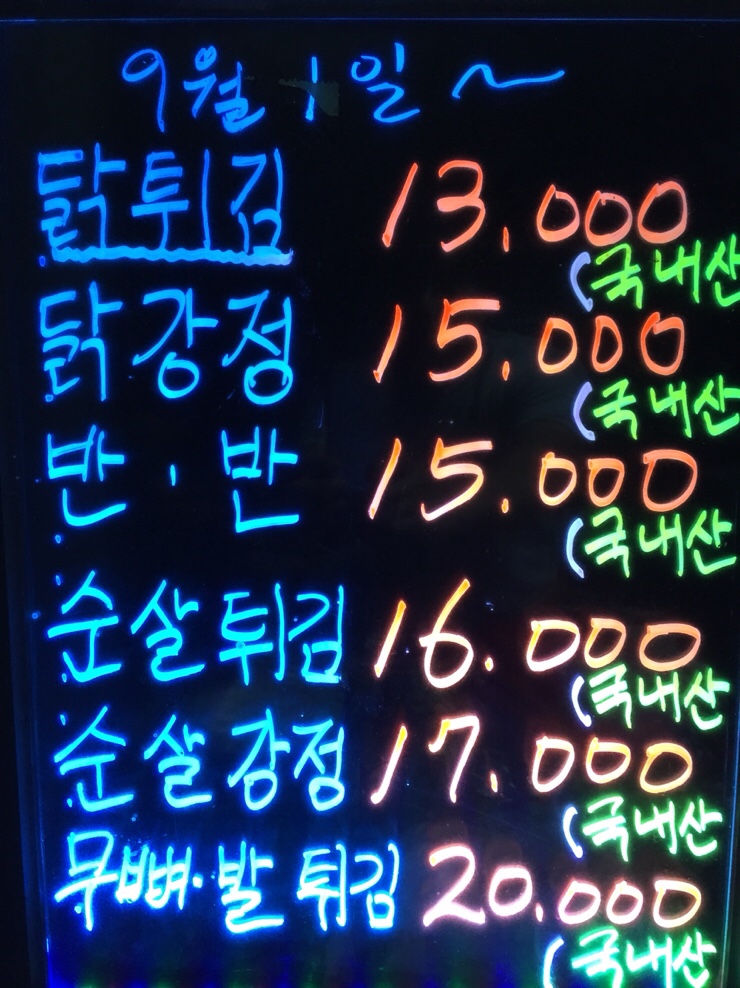 9월 1일 ~
닭튀김 13.000
(국내산
닭강정 15.000
(국내산
반·반 15.000
(국내산
순살튀김 16.000
(국내산
순살강정 17.000
(국내산
무뼈·발 튀김 20.000
(국내산